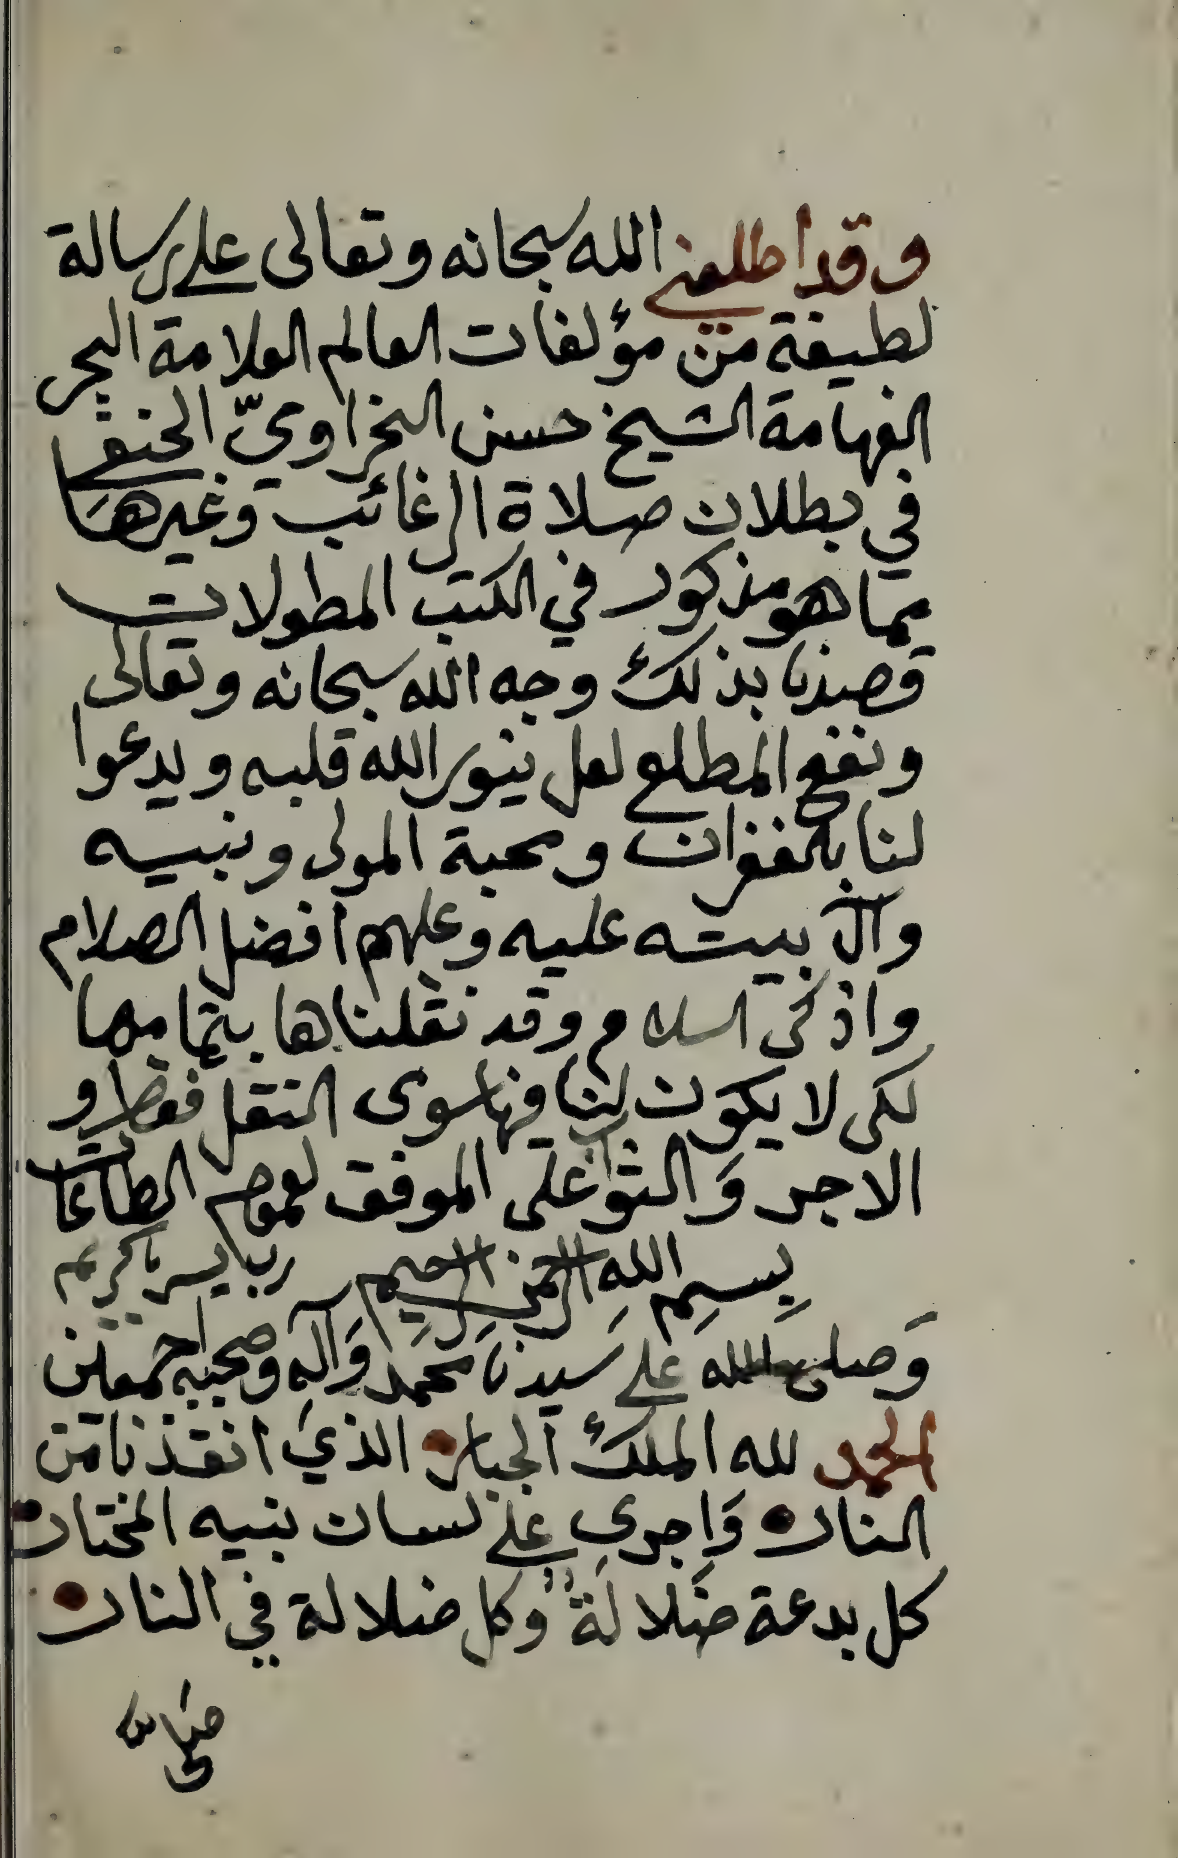 وقد اطلعني الله سبحانه وتعالى على رسالة
لطيفة من مؤلفات العالم العلامة البحر
الفهامة الشيخ حسن النخراويّ الحنفي
في بطلان صلاة الرغائب وغيرها
مما هو مذكور في الكتب المطولات
قصدنا بذلك وجه الله سبحانه وتعالى
ونفع المطلع لعل ينور الله قلبه ويدعوا
لنا بالغفران ومحبة المولى ونبيه
وآل بيته عليه وعليهم افضل الصلام
واذكى السلام وقد نقلناها بتمامها
لكى لا يكون لنا فيها سوى النقل فقط و
الاجر وَالثواب على الموفق لعموم الطاعات
بِسمِ الله الرحمن الرحيم رب يسر يا كريم
وَصلى الله على سَيدنا محمد وَآله وصحبه اجمعين
الحمد لله الملك الجبار الذي انقذنا من
النار وَاجرى على لسان نبيه المختار
كل بدعة ضَلالَة وكل ضلالة في النار